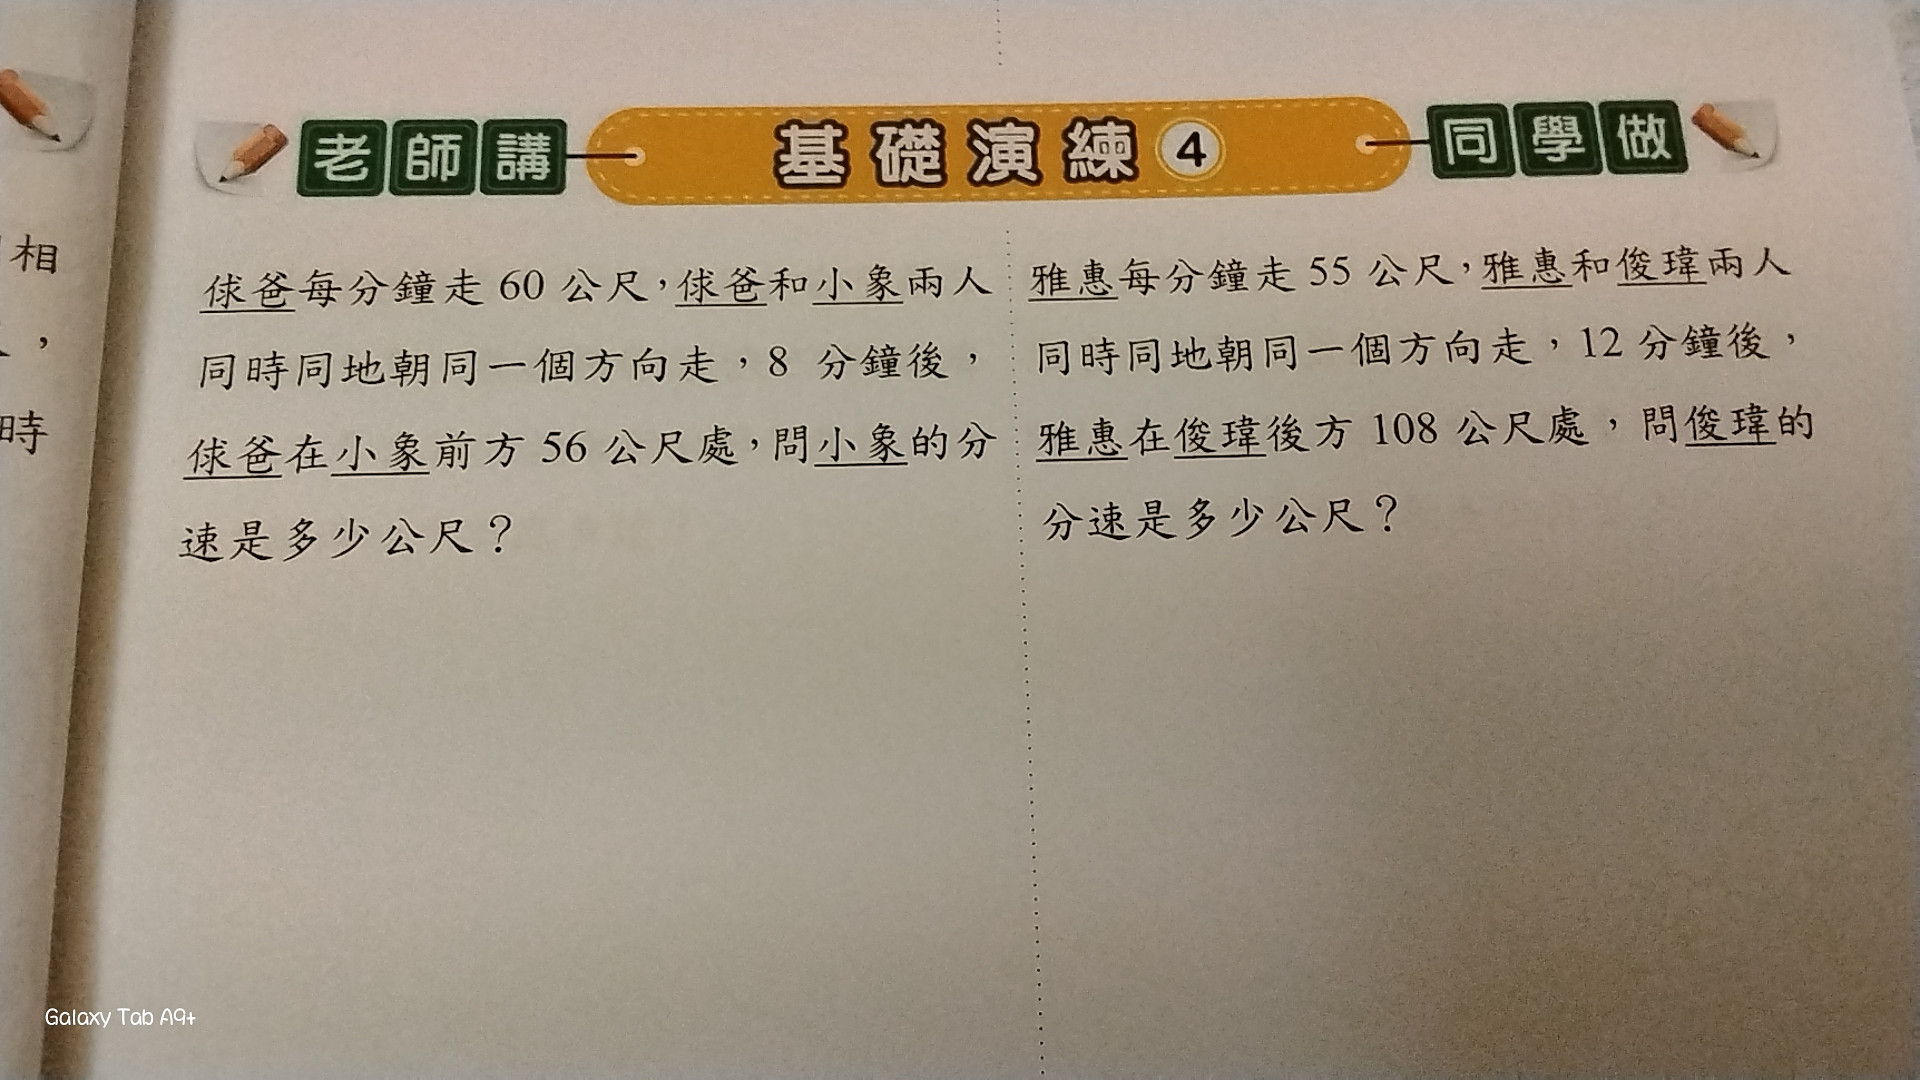 相
，
時
老師講
基礎演練4
同學做
俅爸每分鐘走 60 公尺，俅爸和小象兩人
同時同地朝同一個方向走，8 分鐘後，
俅爸在小象前方 56 公尺處，問小象的分
速是多少公尺？
雅惠每分鐘走 55 公尺，雅惠和俊瑋兩人
同時同地朝同一個方向走，12 分鐘後，
雅惠在俊瑋後方 108 公尺處，問俊瑋的
分速是多少公尺？
Galaxy Tab A9+